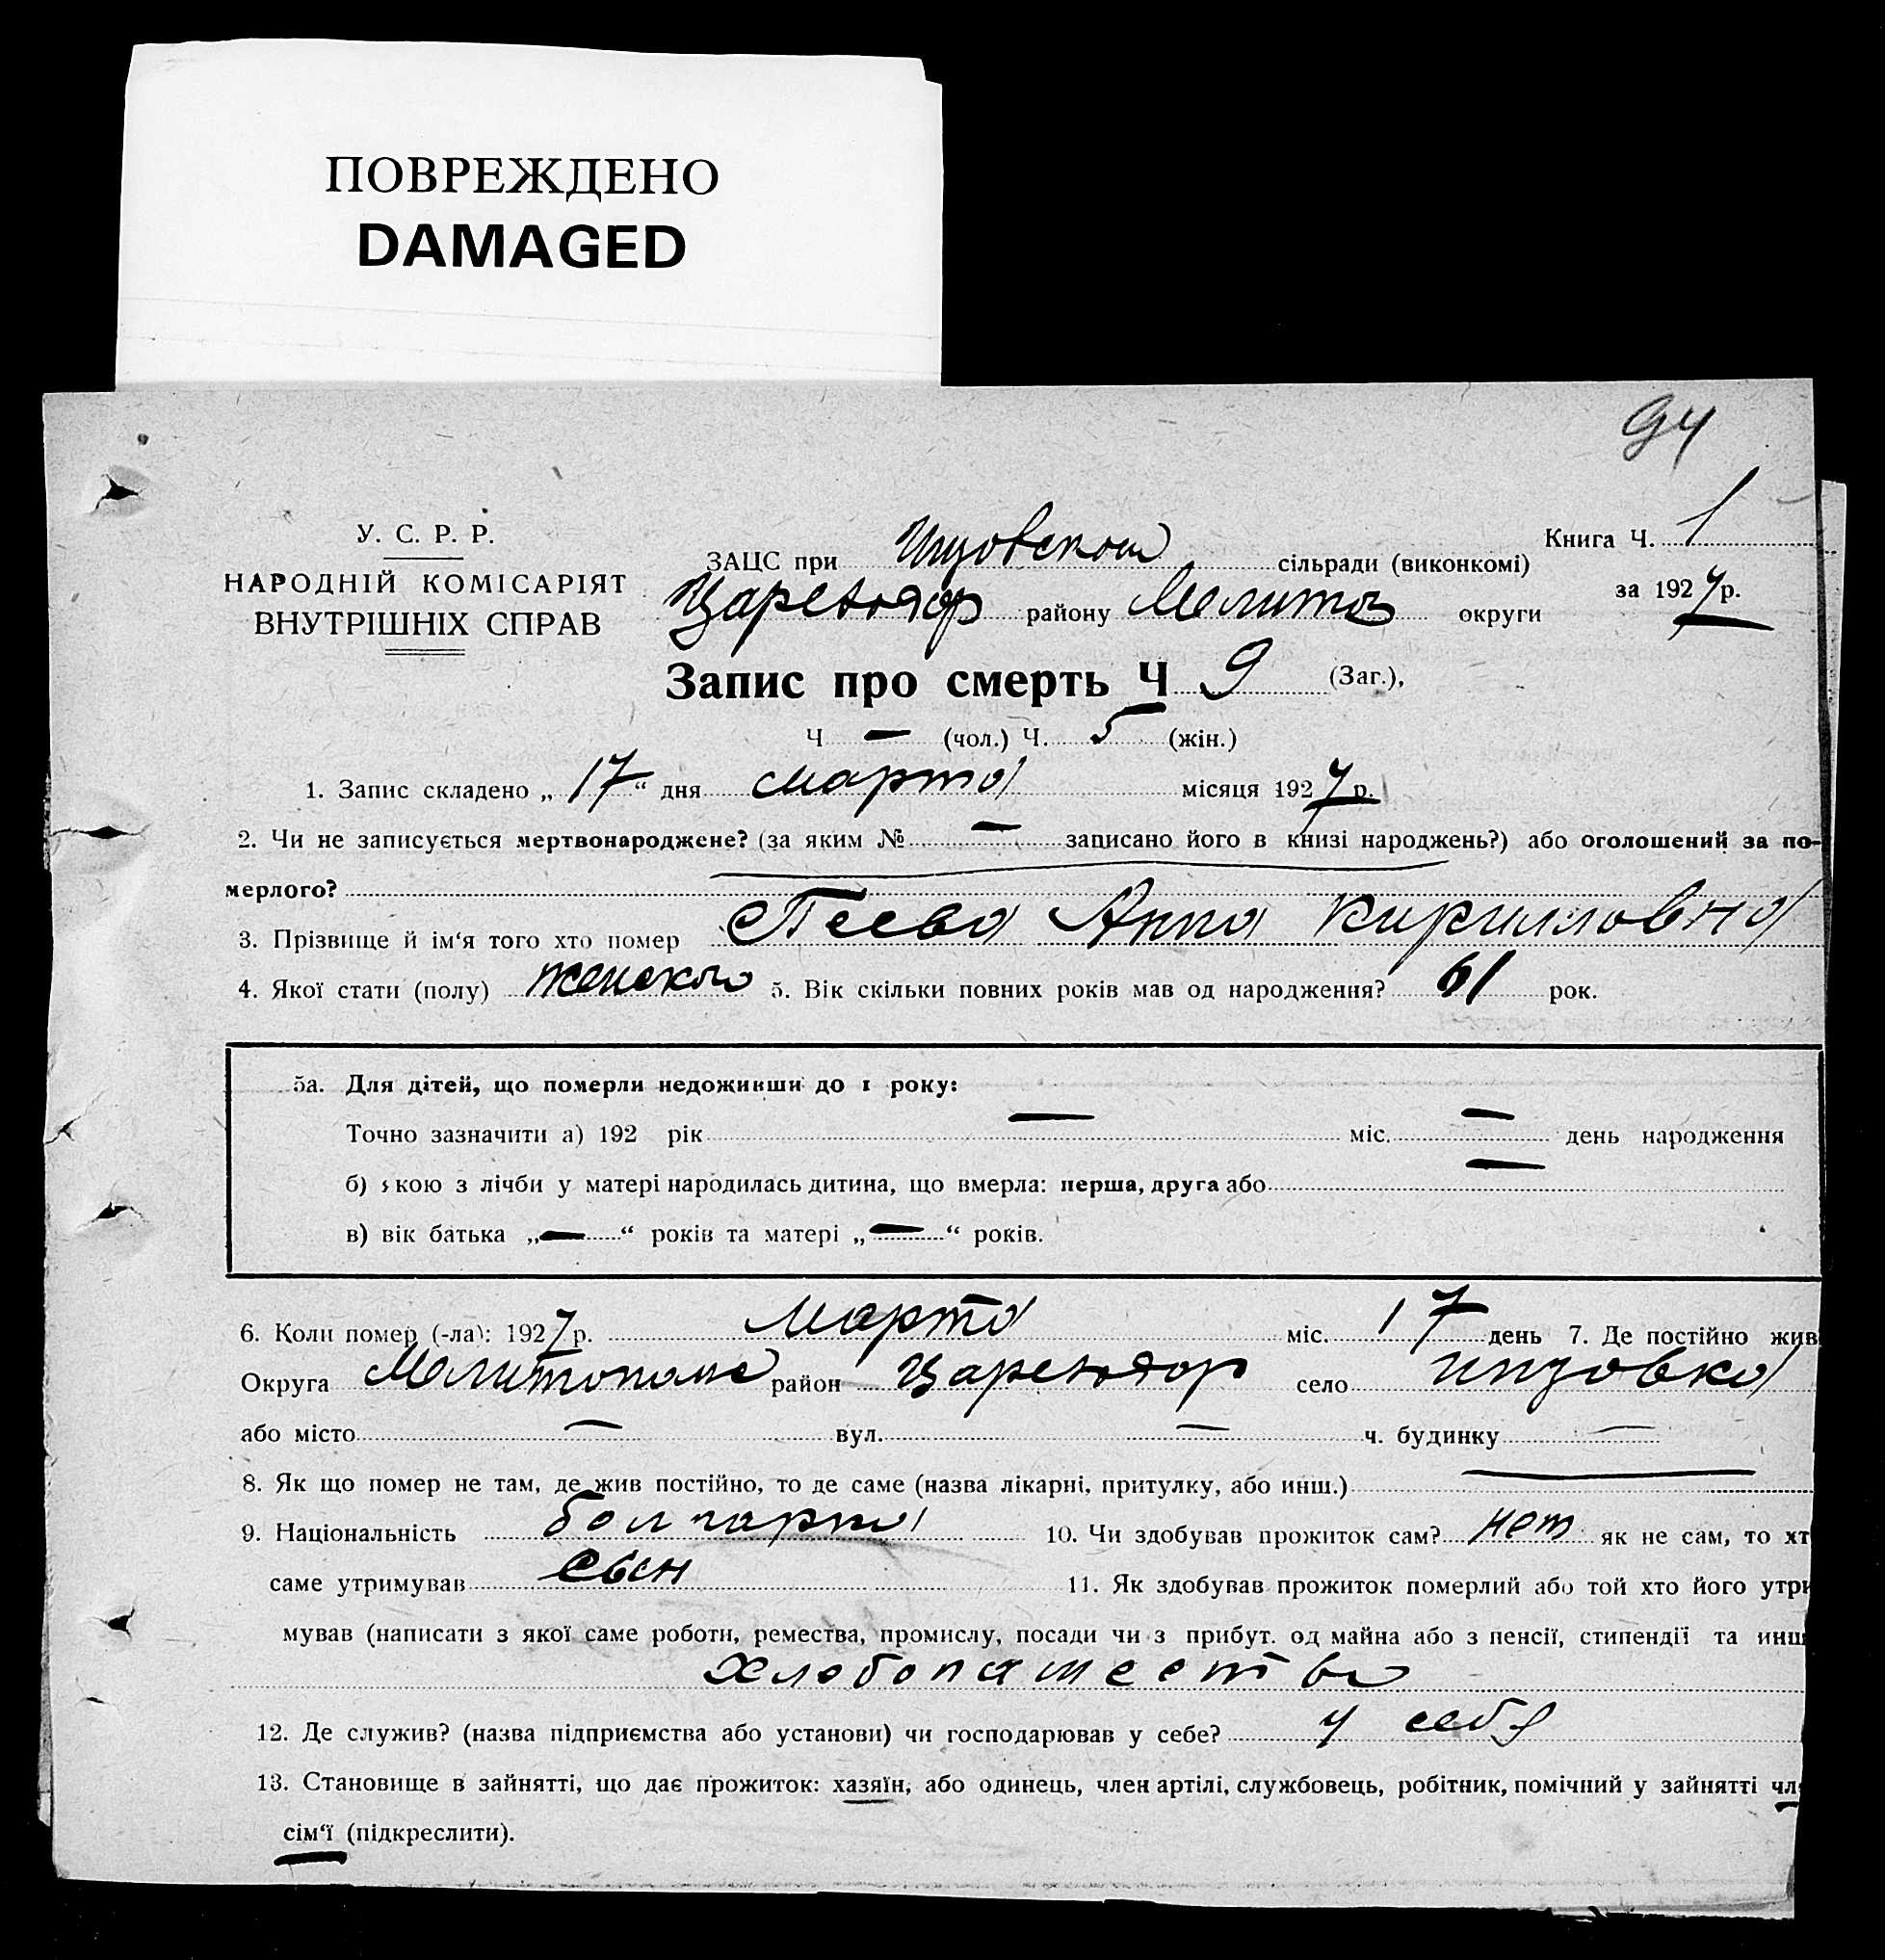 ПОВРЕЖДЕНО
DAMAGED
94
У. С. Р. Р.
НАРОДНІЙ КОМІСАРІЯТ
ВНУТРІШНІХ СПРАВ
ЗАЦС при сільради (виконкомі)
району Мелитоп округи
Книга Ч. 1
за 1927 р.
Запис про смерть Ч 9 (Заг.),
Ч — (чол.) Ч. 5 (жін.)
1. Запис складено „17“ дня марта місяця 1927 р.
2. Чи не записується мертвонароджене? (за яким № — записано його в книзі народжень?) або оголошений за по-
мерлого?
3. Прізвище й ім‘я того хто помер Анна Кирилловна
4. Якої стати (полу) женского 5. Вік скільки повних років мав од народження? 61 рок.
5а. Для дітей, що померли недоживши до 1 року:
Точно зазначити а) 192 рік — міс. — день народження
б) якою з лічби у матері народилась дитина, що вмерла: перша, друга або —
в) вік батька „—“ років та матері „—“ років.
6. Коли помер (-ла): 1927 р. Марта міс. 17 день 7. Де постійно жив
Округа район село
або місто — вул. — ч. будинку —
8. Як що помер не там, де жив постійно, то де саме (назва лікарні, притулку, або инш.) —
9. Національність болгарка 10. Чи здобував прожиток сам? нет як не сам, то хт
саме утримував сын 11. Як здобував прожиток померлий або той хто його утри
мував (написати з якої саме роботи, ремества, промислу, посади чи з прибут. од майна або з пенсії, стипендії та инш
хлебопашество
12. Де служив? (назва підприємства або установи) чи господарював у себе? у себя
13. Становище в зайнятті, що дає прожиток: хазяїн, або одинець, член артілі, службовець, робітник, помічний у зайнятті чл
сім‘ї (підкреслити).